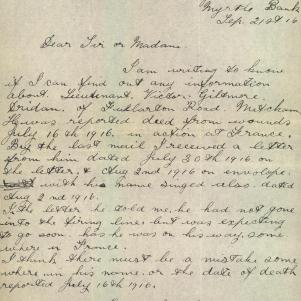 Myrtle Bank
Sep. 21st 16
Dear Sir or Madam
I am writing to know
if I can find out any information
about. Lieutenant Victor. Giltmore.
Cridan. of Fullarton Road. Mitcham
He was reported deed from wounds
July 16th 1916. in action at France.
By the last mail I received a letter
from him dated July 30th 1916 on
the letter. & Aug 2nd 1916 on envolope.
with his name singed also. dated
Aug 2nd 1916.
In the letter he told me he had not gone
into the firing line. but was expecting
to go soon. has he was on his way. some
where in France.
I think there must be a mistake some
where in his name. or the date of death
reported July 16th 1916.